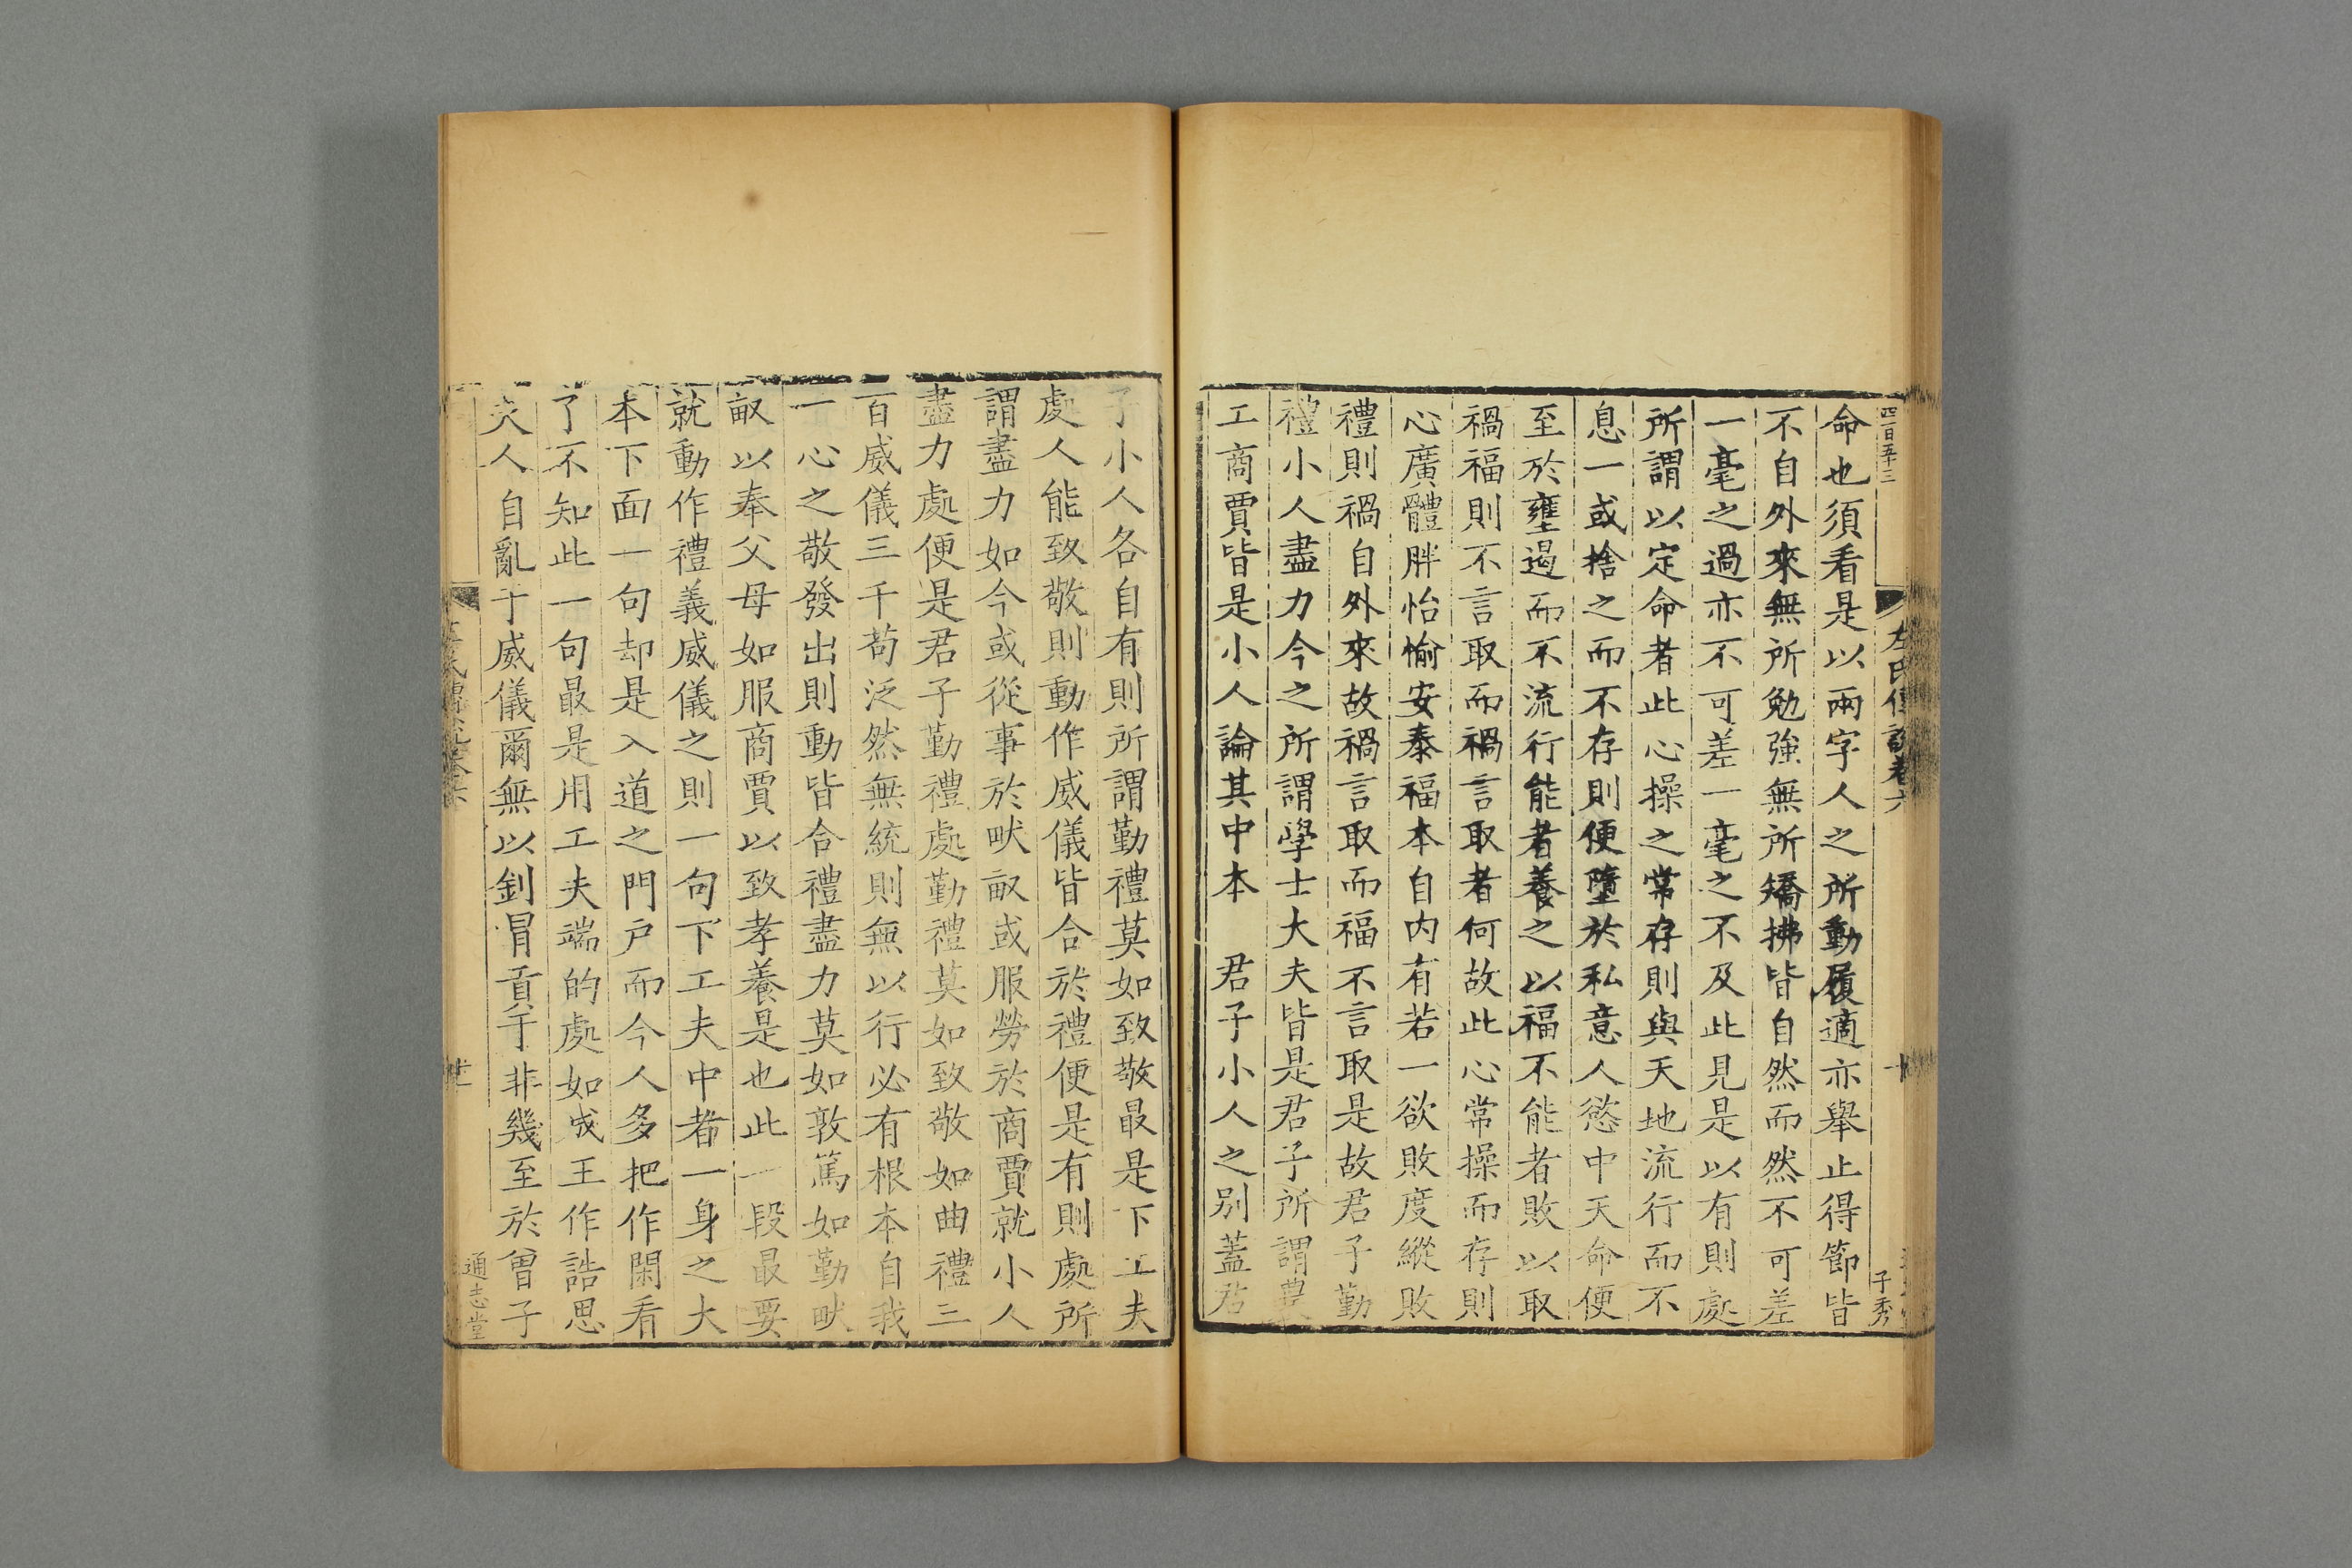 四百五十三
左氏傳說卷六
十
子秀
命也須看是以兩字人之所動履適亦舉止得節皆
不自外來無所勉強無所矯拂皆自然而然不可差
一毫之過亦不可差一毫之不及此見是以有則處
所謂以定命者此心操之常存則與天地流行而不
息一或捨之而不存則便墮於私意人慾中天命便
至於壅遏而不流行能者養之以福不能者敗以取
禍福則不言取而禍言取者何故此心常操而存則
心廣體胖怡愉安泰福本自内有若一欲敗度縱敗
禮則禍自外來故禍言取而福不言取是故君子勤
禮小人盡力今之所謂學士大夫皆是君子所謂農
工商賈皆是小人論其中本 君子小人之別蓋君
子小人各自有則所謂勤禮莫如致敬最是下工夫
處人能致敬則動作威儀皆合於禮便是有則處所
謂盡力如今或從事於畎畝或服勞於商賈就小人
盡力處便是君子勤禮處勤禮莫如致敬如曲禮三
百威儀三千苟泛然無統則無以行必有根本自我
一心之敬發出則動皆合禮盡力莫如敦篤如勤畎
畝以奉父母如服商賈以致孝養是也此一段最要
就動作禮義威儀之則一句下工夫中者一身之大
本下面一句却是入道之門戶而今人多把作閑看
了不知此一句最是用工夫端的處如成王作誥思
夫人自亂于威儀爾無以釗冒貢于非幾至於曾子
左氏傳說卷六
通志堂